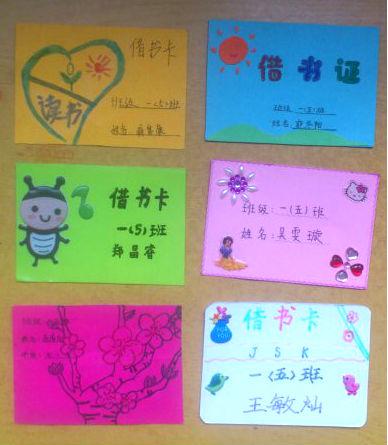 借书卡
读书
班级 一(5)班
姓名
借书证
班级 一(五)班
姓名
借书卡
一(5)班
郑晶睿
班级:一(五)班
姓名:吴雯璇
借书卡
J S K
一(五)班
王敏灿